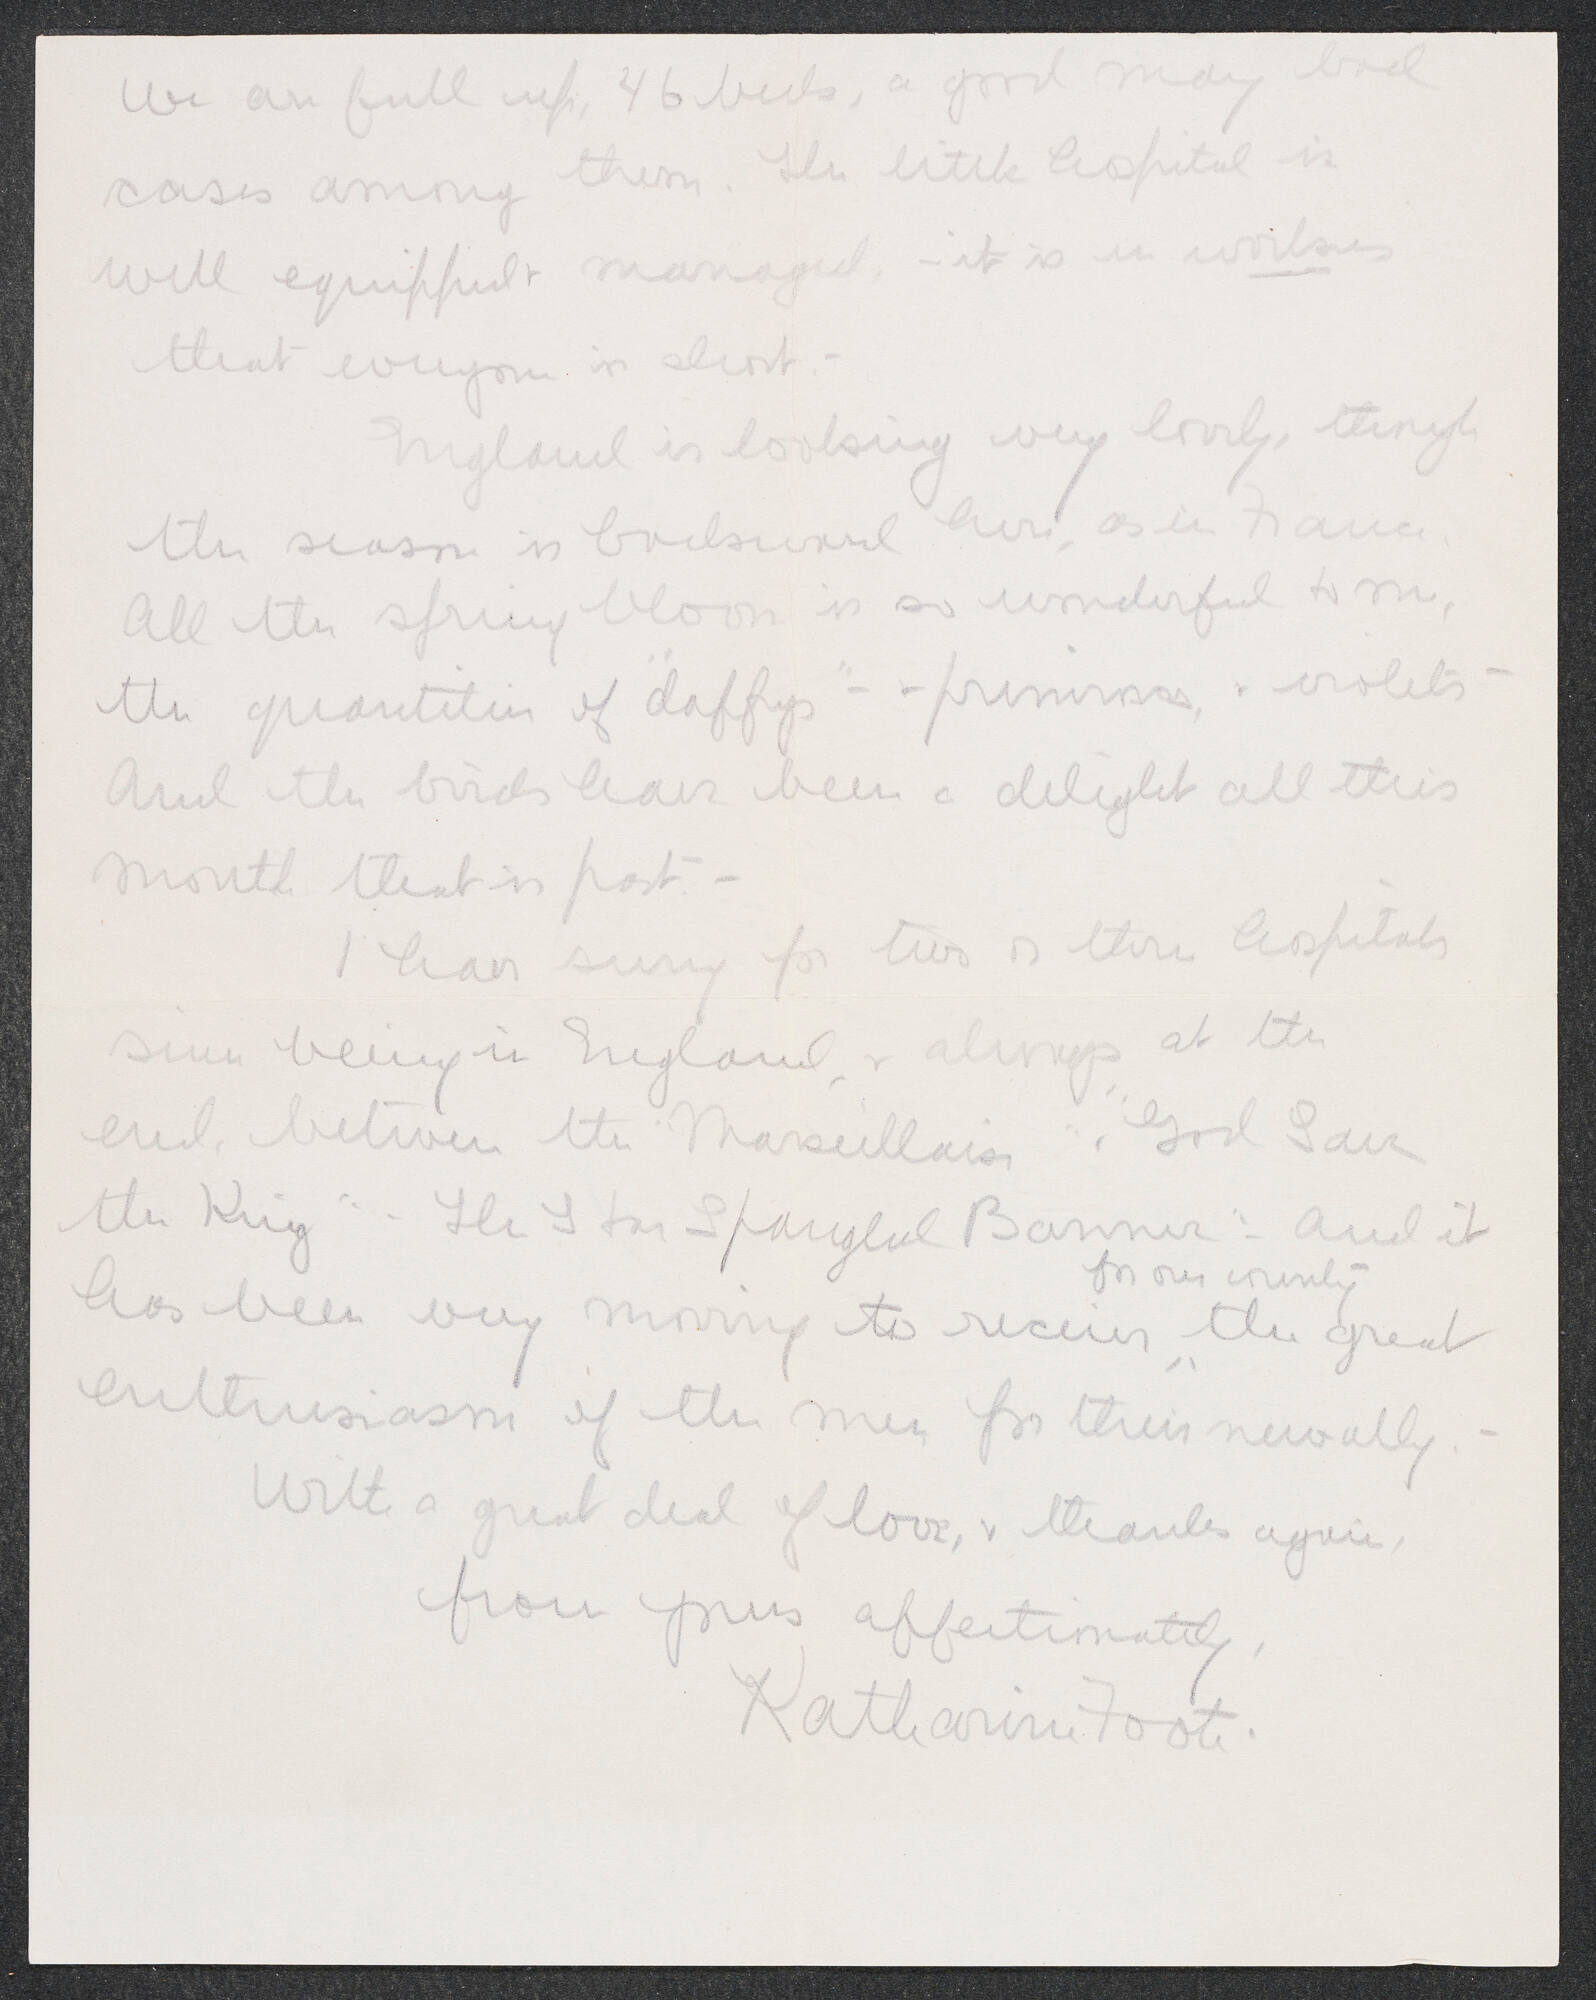 We are full up, 46 beds, a good many bad
cases among them. The little hospital is
well equipped & managed, - it is in workers
that everyone is short. -
England is looking very lovely, though
the season is backward here, as in France.
All the spring bloom is so wonderful to me,
the quantities of "daffys" - - primroses, & violets -
And the birds have been a delight all this
month that is past. -
I have sung for two or three hospitals
since being in England, & always, at the
end, between the "Marseillaise", "God Save
the King" - The Star Spangled Banner" - And it
for our country
has been very moving to receive " the great
enthusiasm of the men for their new ally. -
With a great deal of love, & thanks again,
from yours affectionately,
Katharine Foote.